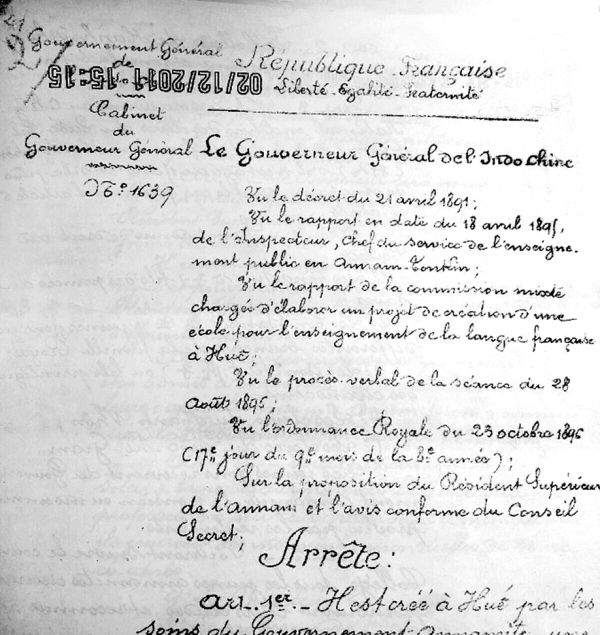 41
2/
Gouvernement Général
de
02/12/2011 15:15
République Française
Liberté - Egalité - Fraternité
Cabinet
du
Gouverneur Général
N° 1639
Le Gouverneur Général de l'Indo Chine
Vu le décret du 21 avril 1891;
Vu le rapport en date du 18 avril 1895,
de l'Inspecteur, Chef du service de l'enseigne-
ment public en Annam-Tonkin;
Vu le rapport de la commission mixte
chargée d'élaborer un projet de création d'une
école pour l'enseignement de la langue française
à Hué;
Vu le procès-verbal de la séance du 28
Août 1895;
Vu l'ordonnance Royale du 23 octobre 1896
(17e jour du 9e mois de la 8e année);
Sur la proposition du Résident Supérieur
de l'annam et l'avis conforme du Conseil
Secret;
Arrête:
Art. 1er - Il est créé à Hué par les
soins du Gouvernement annamite, une